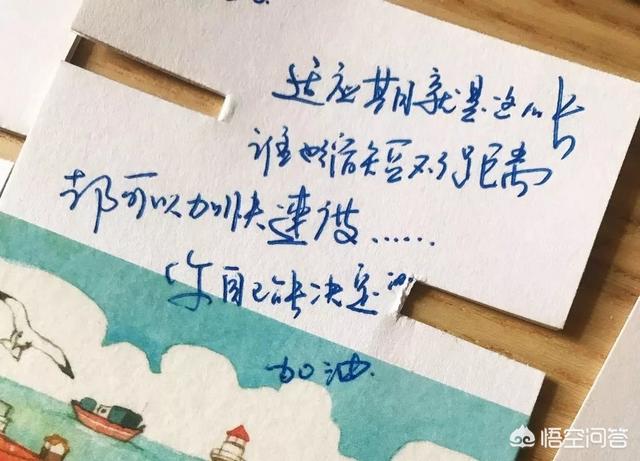 适应期就是这么长
谁也缩短不了距离
都可以加快速度……
你自己能决定的
加油.
悟空问答